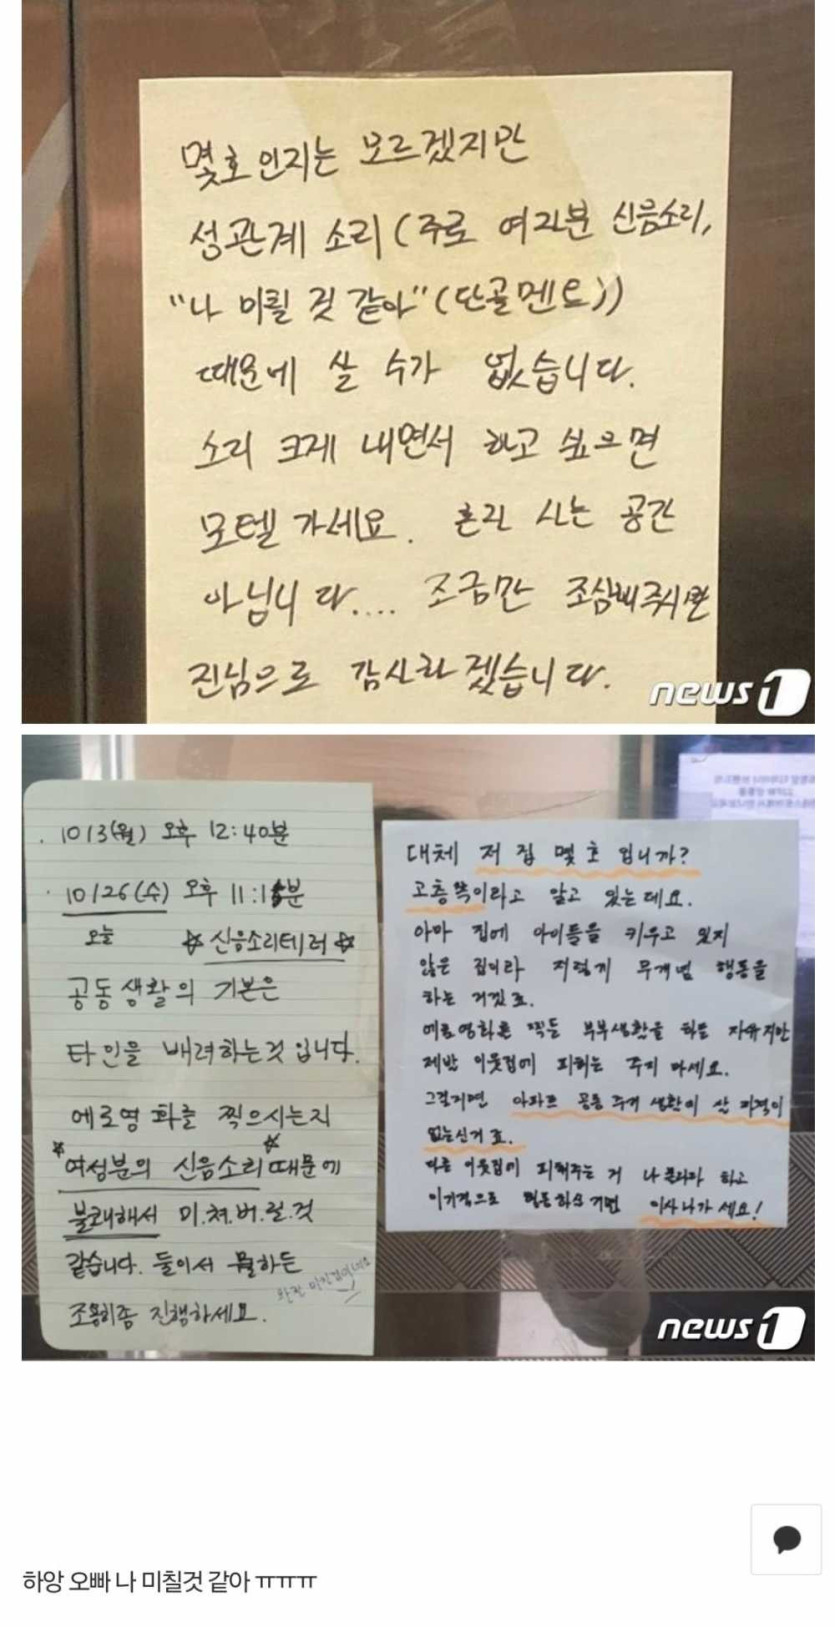 몇호인지는 모르겠지만
성관계 소리 (주로 여자분 신음소리,
"나 미칠 것 같아"(단골멘트))
때문에 살 수가 없습니다.
소리 크게 내면서 하고 싶으면
모텔 가세요. 혼자 사는 공간
아닙니다.... 조금만 조심해주시면
진심으로 감사하겠습니다.
news1
· 10/3(월) 오후 12:40분
· 10/26(수) 오후 11:15분
오늘 ☆신음소리테러☆
공동생활의 기본은
타인을 배려하는것 입니다.
에로영화를 찍으시는지
*여성분의 신음소리*때문에
불쾌해서 미.쳐.버.릴.것
같습니다. 둘이서 뭘하든
조용히좀 진행하세요.
대체 저 집 몇 호 입니까?
고층쪽이라고 알고 있는데요.
아마 집에 아이들을 키우고 있지
않은 집이라 저렇게 무개념 행동을
하는 거겠죠.
에로영화를 찍든 부부생활을 하든 자유지만
제발 이웃집에 피해는 주지 마세요.
그럴거면 아파트 공동 주거 생활에 살 자격이
없는신거 죠.
다른 이웃집에 피해주는 거 나 몰라라 하고
이기적으로 행동하실 거면 이사 나가세요!
news1
하앙 오빠 나 미칠것 같아 ㅠㅠㅠ